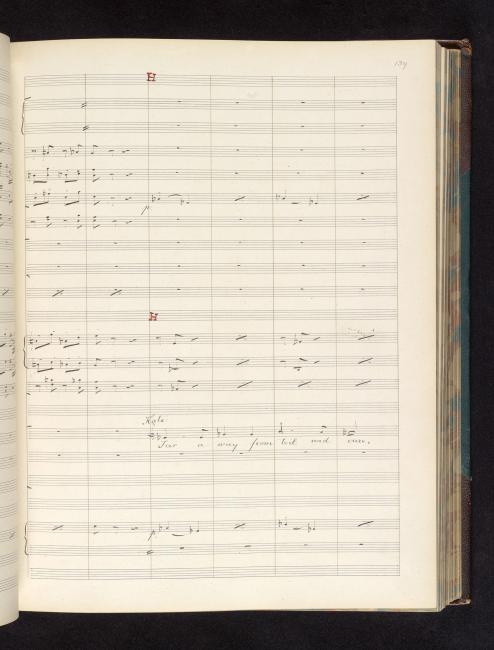 139
H
H
p
Kate
Far a way from toil and care,
p